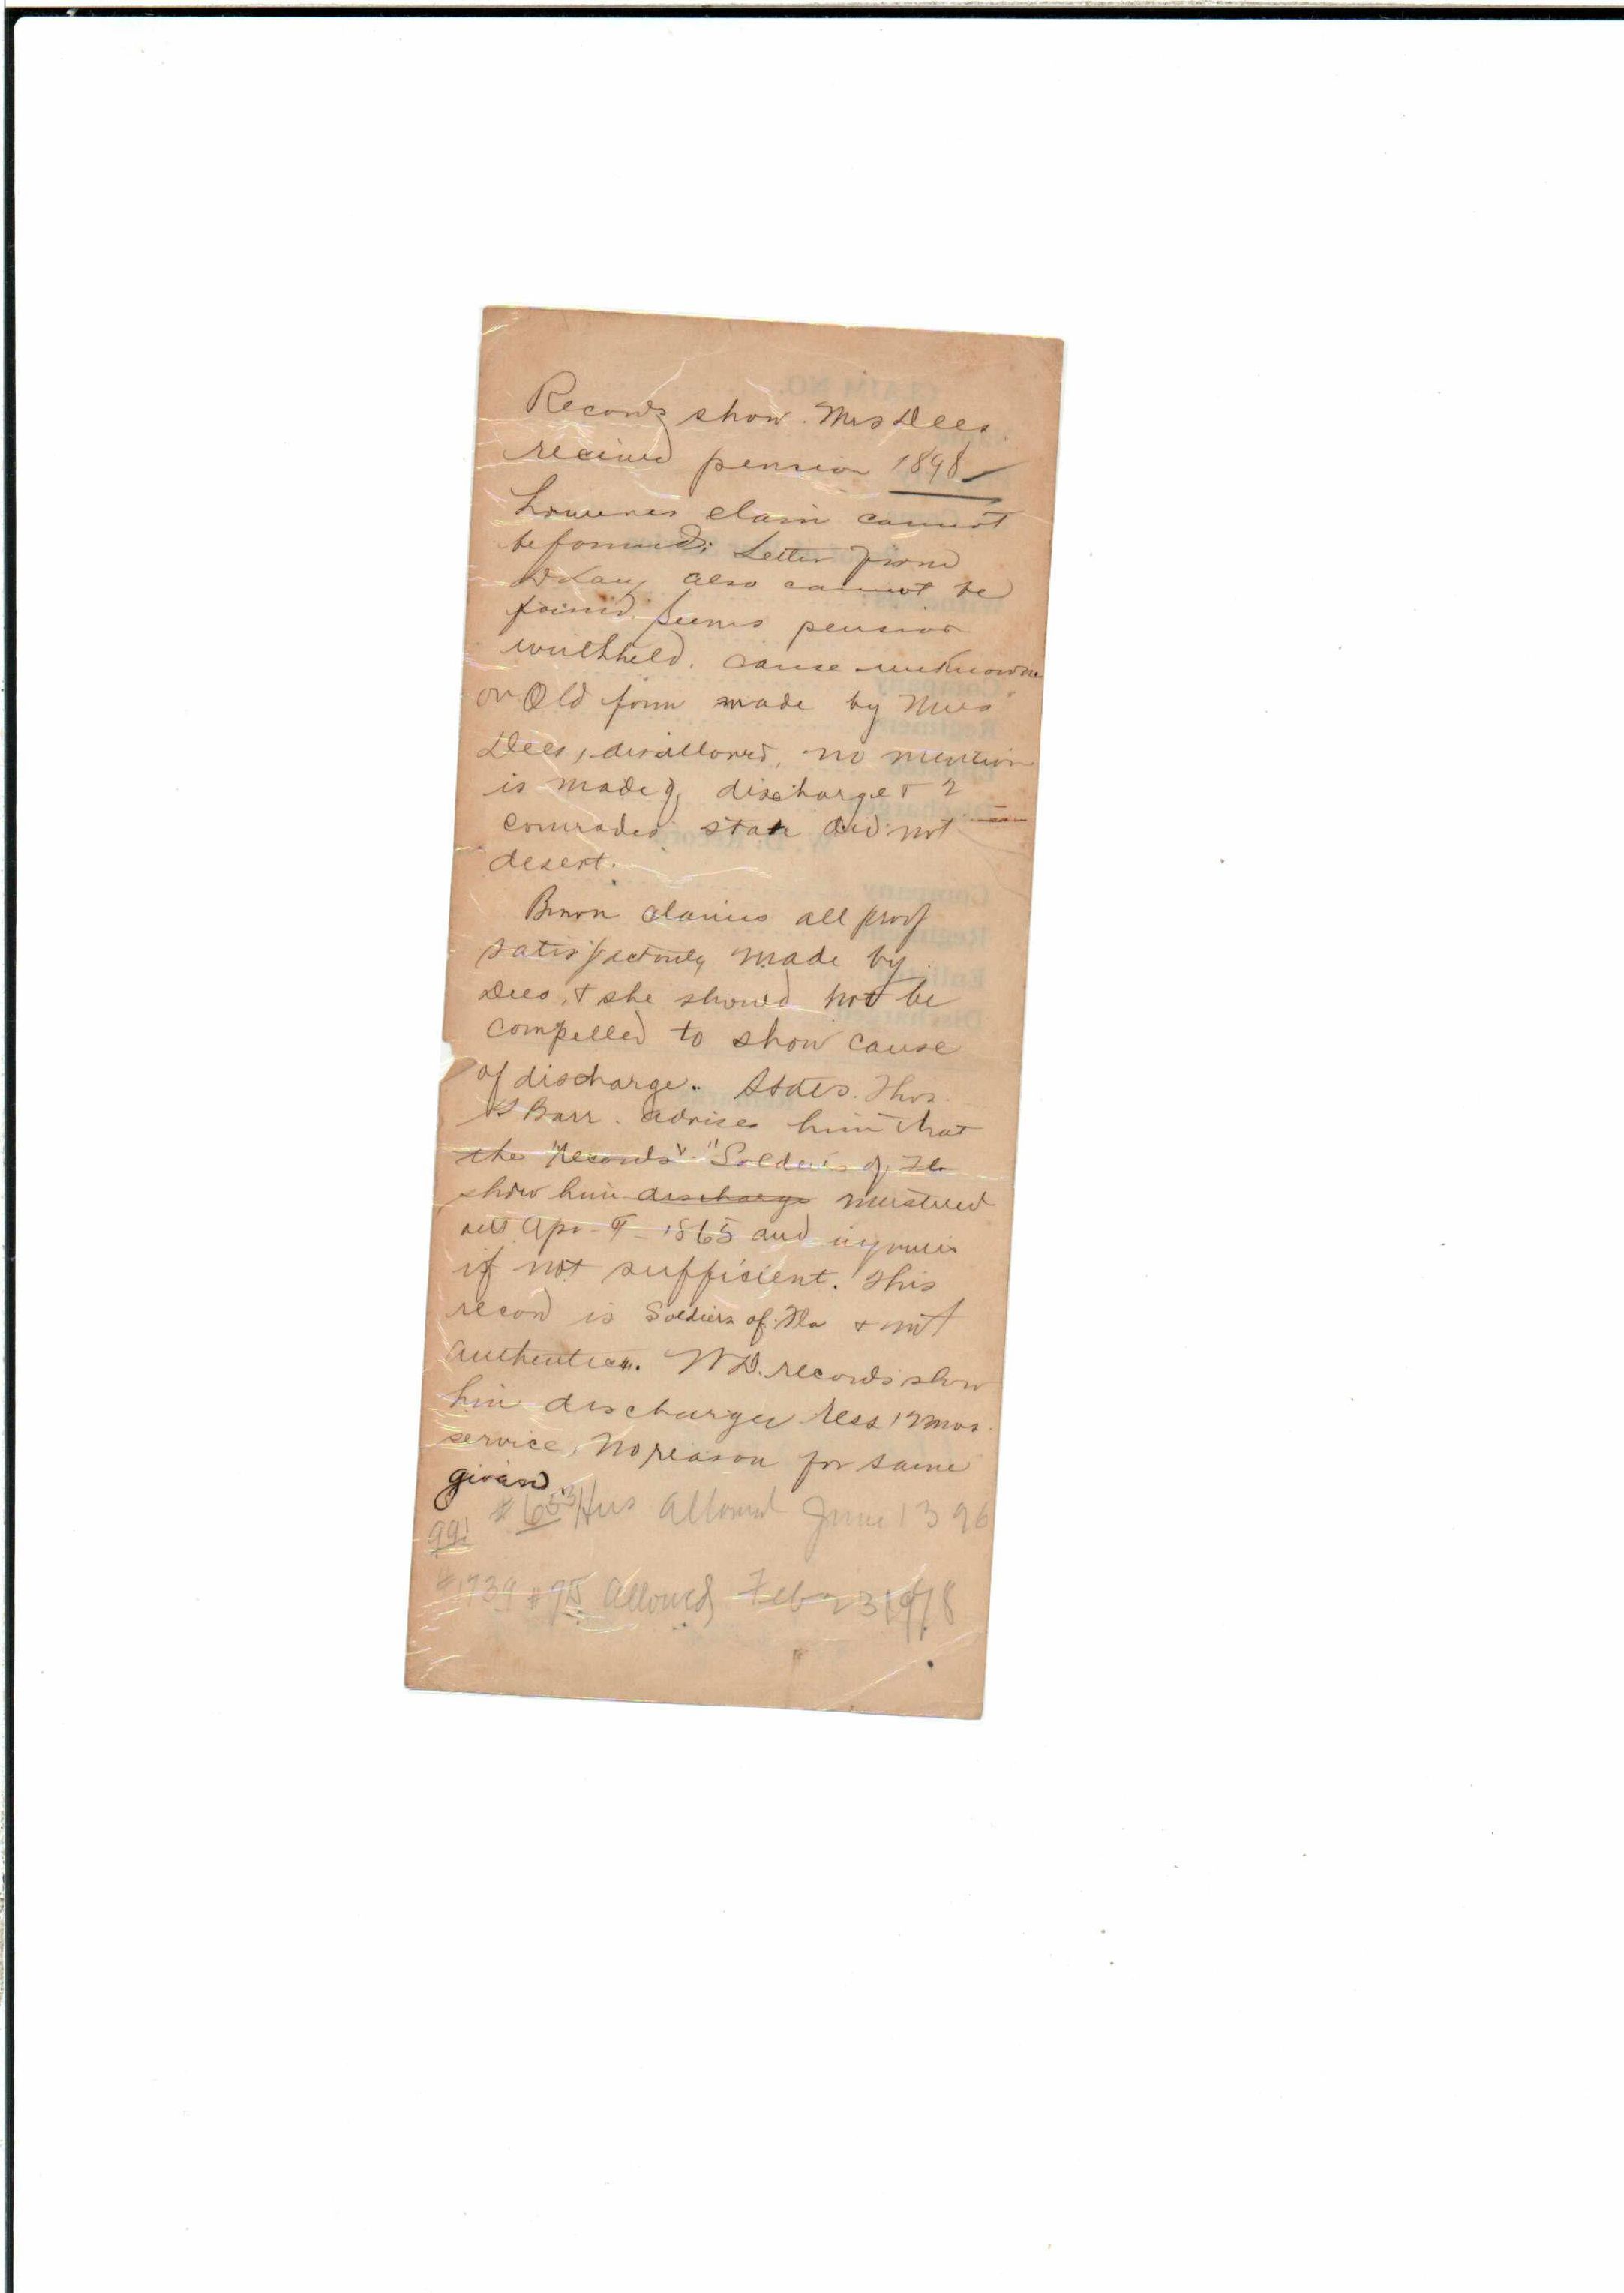 Records show. Mrs Dees
received pension 1898
however claim cannot
be found; Letter from
also cannot be
found. Seems pension
withheld. cause unknown
on Old form made by Mrs
Dees, disallowed, no mention
is made of discharge & 2
comrades state did not
desert.
claims all proof
satisfactorily made by
Dees, & she should not be
compelled to show cause
of discharge. States. Thos.
Barr. advises him that
the "Records" "Soldiers of Fla
show him discharge mustered
out Apr. 9 - 1865 and
if not sufficient. This
record is Soldiers of Fla & not
authentic. W.D. records show
him discharged less 12 mos.
service, No reason for same
given.
#653 Hus Allowed June 13 96
99!
#1739 #95 Allowed Feb 23 1918